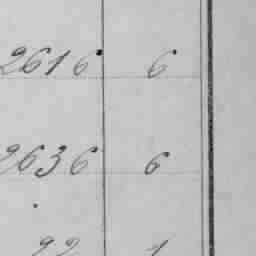 2616 6
2636 6